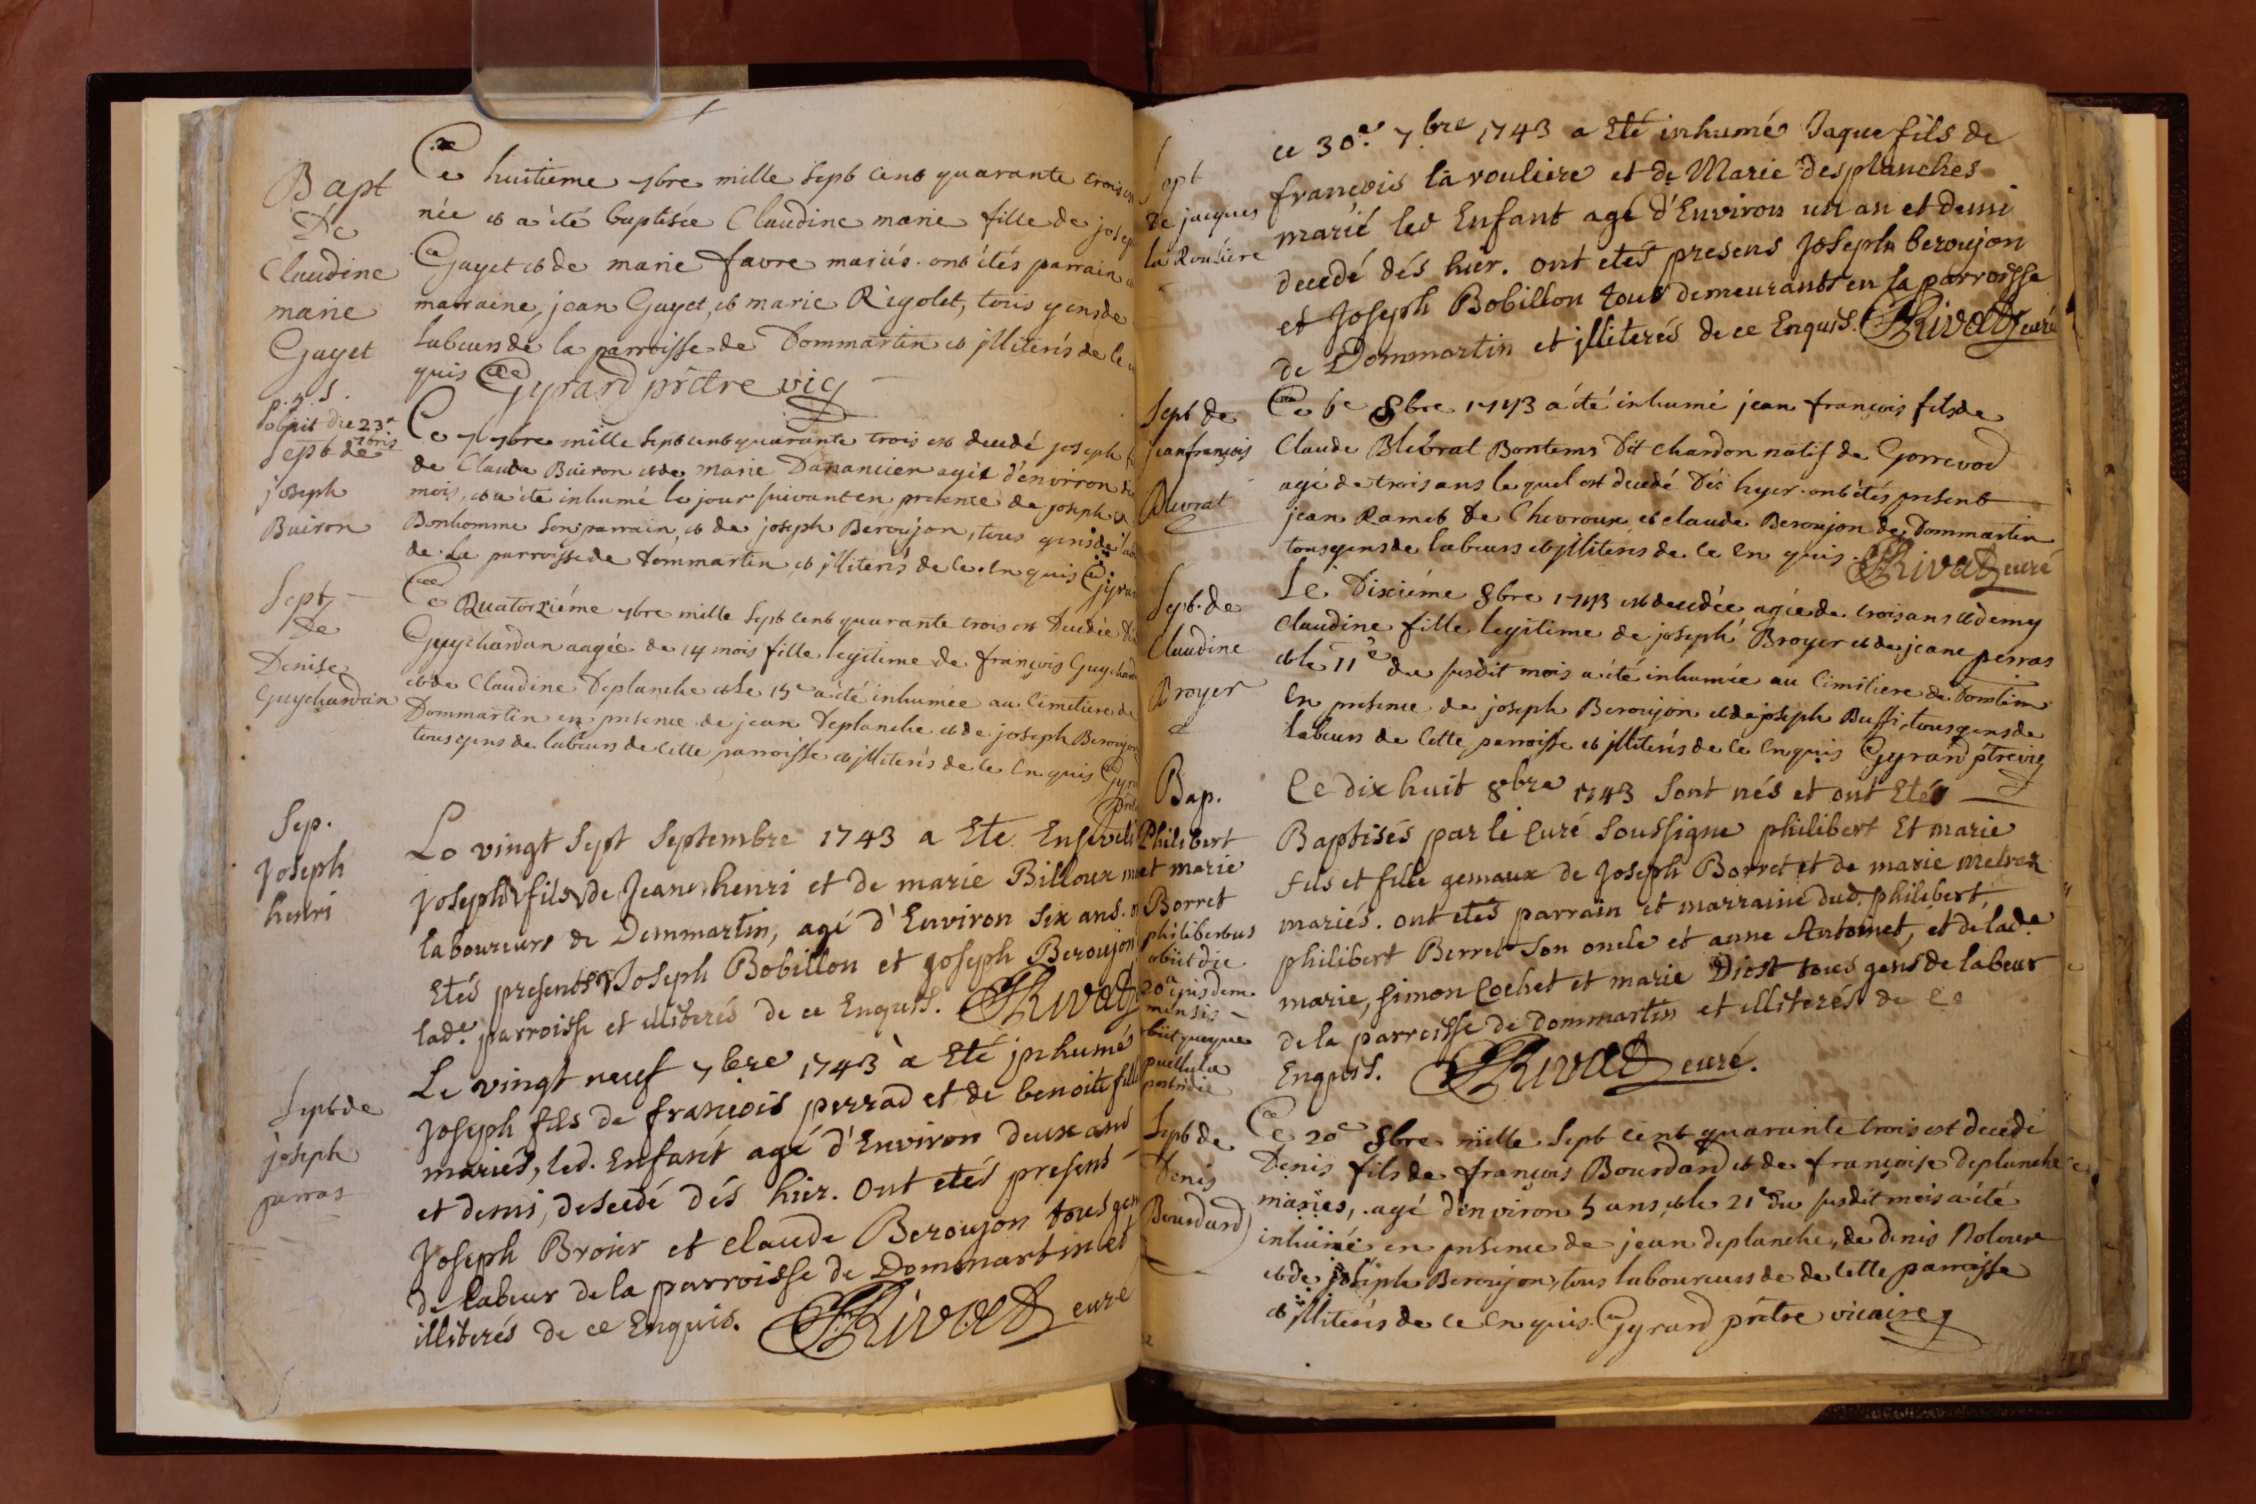 Bapt
De
Claudine
marie
Guyet
p. n. s.
obiit die 23e
7bris
Ce huitieme 7bre mille sept cent quarante trois est
née et a été baptisée Claudine marie fille de joseph
Guyet et de marie favre mariés. ont étés parrain et
marraine, jean Guyet, et marie Rigolet, tous gens de
labeurs de la parroisse de Dommartin et jlliterés de ce
quis Gyrard prêtre vic
Sept de
joseph
Buiron
Ce 7 7bre mille sept cent quarante trois est decedé joseph
de Claude Buiron et de marie Danancier agée d'environ
mois, et a été inhumé le jour suivant en presence de joseph
Bonhomme son parrain, et de joseph Beroujon, tous gens de
de la parroisse de Dommartin et jlliterés de ce enquis Gyrard
Sept
De
Denise
Guychardan
Ce Quatorziéme 7bre mille sept cent quarante trois est Decedée
Guychardan aagée de 14 mois fille legitime de françois Guychard
et de Claudine Deplanche et le 15e a été inhumée au Cimetiere de
Dommartin en presence de jean Deplanche et de joseph Beroujon
tous gens de labeurs de cette parroisse et jlliterés de ce enquis
Sep.
Joseph
henri
Le vingt sept Septembre 1743 a Eté Enseveli
Joseph fils de Jean henri et de marie Billoux
laboureurs de Dommartin, agé d'Environ six ans.
Etés presents Joseph Bobillon et joseph Beroujon
lade. parroisse et illiterés de ce Enquis. Rivat
Sept de
joseph
parras
Le vingt neuf 7bre 1743 à Eté jnhumé
Joseph fils de françois perrad et de benoite
mariés, led. Enfant agé d'Environ deux ans
et demi, deseedé dés hier. ont etés presens
Joseph Broier et claude Beroujon tous gens
de labeur de la parroisse de Dommartin et
illiterés de ce Enquis. Rivat curé
Sept
De jacques
la Rouliere
ce 30.e 7.bre 1743 a Eté inhumé Jaque fils de
françois la rouliere et de Marie Desplanches
marié led Enfant agé d'Environ un an et demi
decedé dés hier. ont etes presens Joseph beroujon
et Joseph Bobillon tous demeurants en la parroisse
de Dommartin et jlliterés de ce Enquis. Rivat curé
Sept de
jeanfrançois
Blevrat
Ce 6e 8bre 1743 a été inhumé jean françois fils de
Claude Blevrat Bontems Dit chardon natif de Gorrevod
agé de trois ans le quel est decedé Dés hyer. ont étés present
jean Ramet De Chevroux et claude Beroujon de Dommartin
tous gens de labeurs et jlliterés de ce en quis. Rivat curé
Sept. de
Claudine
Broyer
Le Dixiéme 8bre 1743 est decedée agée de trois ans et demy
Claudine fille legitime de joseph Broyer et de jeane perras
et le 11e du susdit mois a été inhumée au Cimitiere de Domtin
En presence de joseph Beroujon et de joseph Buffi, tous gens de
labeurs de cette parroisse et jlliterés de ce enquis Gyrard ptre vic
Bap.
Philibert
et marie
Borret
philibertus
obiit die
20a ejusdem
mensis
obiit quoque
puellula
postridie
Ce dix huit 8bre 1743 sont nés et ont Etés
Baptisés par le Curé soussigne philibert Et marie
fils et fille gemaux de Joseph Borret et de marie
mariés. ont etés parrain et marraine dud. philibert,
philibert Borret son oncle et anne Antoinet, et de lad.e
marie, simon Cochet et marie Diost tous gens de labeur
de la parroisse de Dommartin et illiterés de ce
Enquis. Rivat curé.
Sept de
Denis
Bourdard
Ce 20e 8bre mille sept cent quarante trois est decedé
Denis fils de françois Bourdard et de françoise Deplanche
mariés, agé d'environ 5 ans, et le 21e du susdit mois a été
inhumé en presence de jean deplanche, de Denis
et de joseph Beroujon, tous laboureurs de de cette parroisse
et jlliterés de ce en quis. Gyrard prêtre vicaire